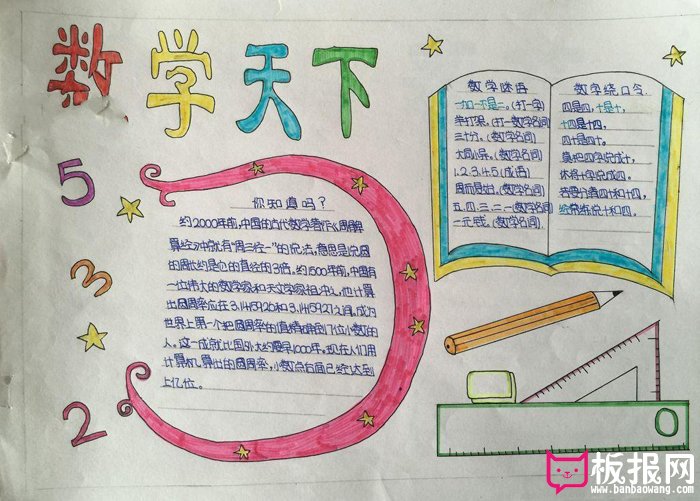 数学天下
5
3
2
你知道吗?
约2000年前,中国的古代数学著作《周髀
算经》中就有“周三径一”的说法,意思是说圆
的周长约是它的直径的3倍。约1500年前,中国有
一位伟大的数学家和天文学家祖冲之,他计算
出圆周率应在3.1415926和3.1415927之间,成为
世界上第一个把圆周率的值精确到7位小数的
人。这一成就比国外大约要早1000年。现在人们用
计算机算出的圆周率,小数点后面已经达到
上亿位。
数学谜语
一加一不是二。(打一字)
羊打架。(打一数学名词)
三十分。(数学名词)
大同小异。(数学名词)
1、2、3、4、5(成语)
周而复始。(数学名词)
五、四、三、二、一(数学名词)
数学绕口令
四是四,十是十,
十四是十四,
四十是四十。
莫把四字说成十,
休将十字说成四。
若要分清四十和十四,
经常练说十和四。
0
板报网
www.banbaowang.com